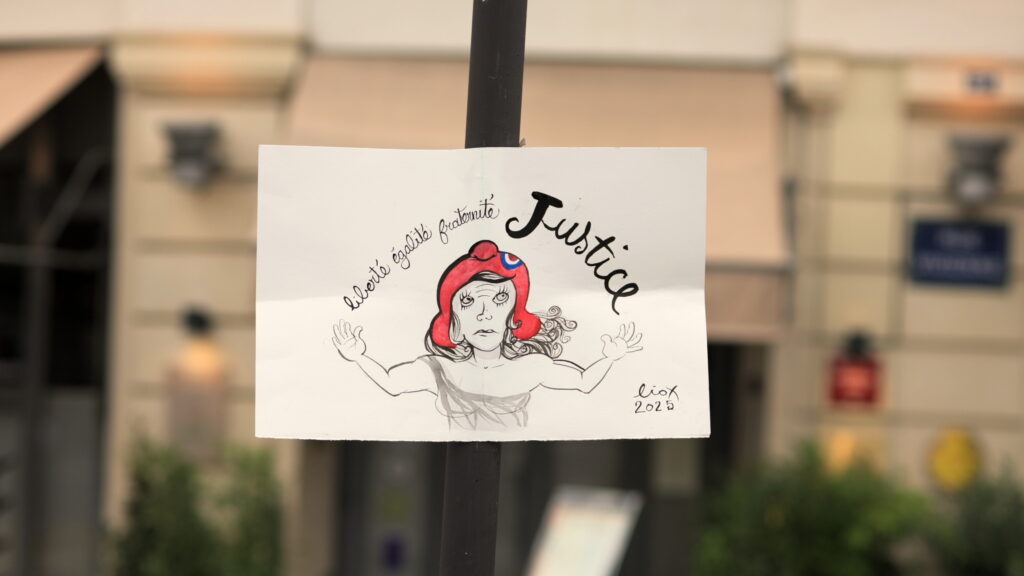 liberté égalité fraternité Justice
liox
2025